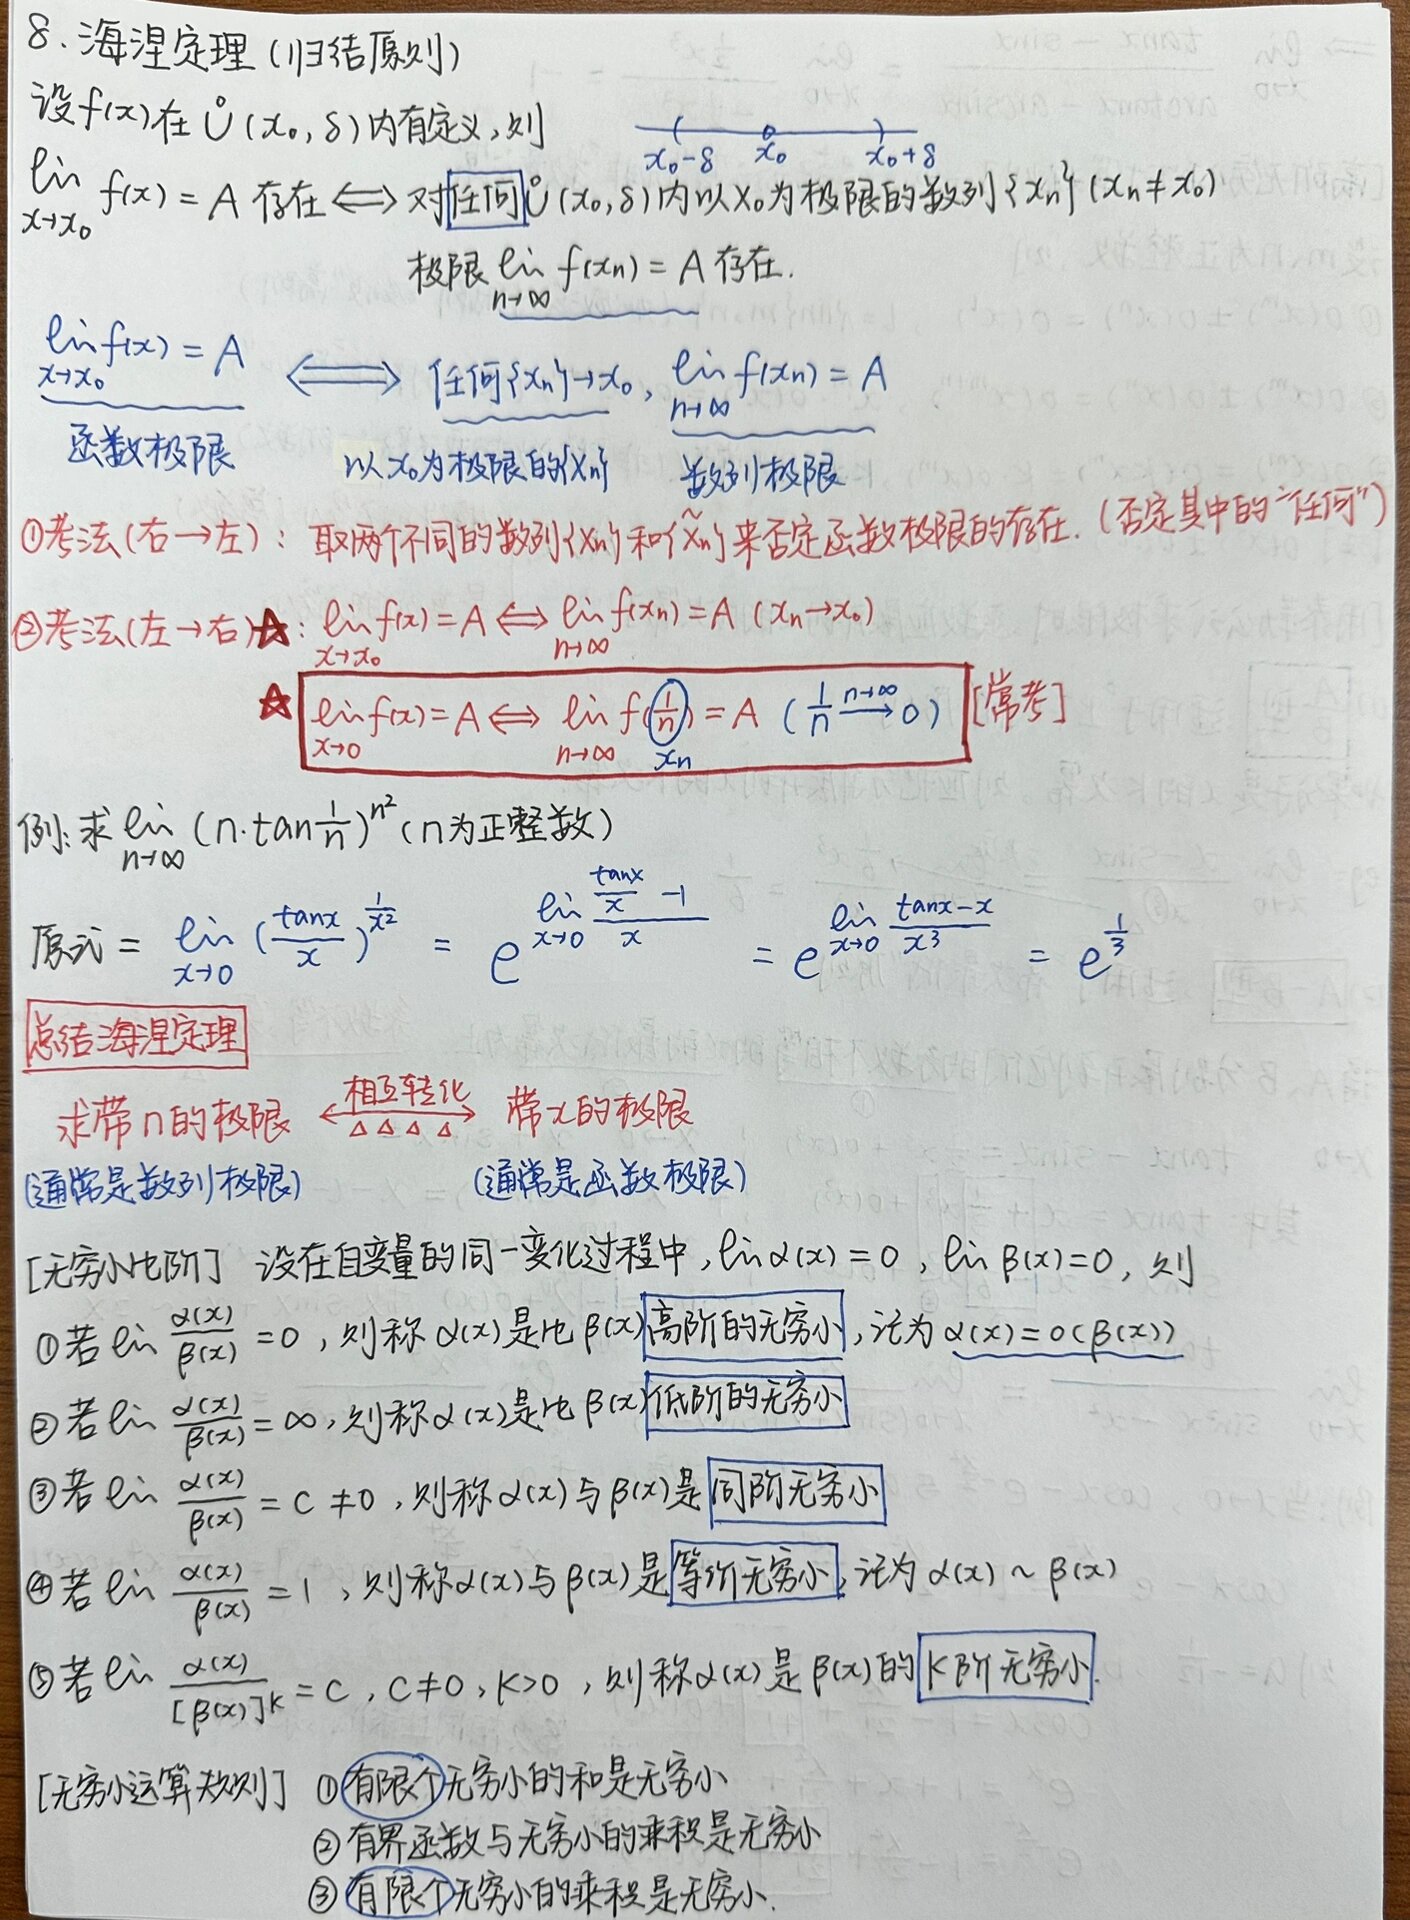 8. 海涅定理 (归结原则)
设f(x)在Ů(x₀, δ)内有定义, 则
x₀-δ x₀ x₀+δ
lim_{x→x₀} f(x) = A 存在 ⟺ 对任何Ů(x₀, δ)内以x₀为极限的数列{xₙ} (xₙ ≠ x₀)
极限 lim_{n→∞} f(xₙ) = A 存在.
lim_{x→x₀} f(x) = A ⟺ 任何{xₙ}→x₀, lim_{n→∞} f(xₙ) = A
函数极限 以x₀为极限的{xₙ} 数列极限
①考法(右→左): 取两个不同的数列{xₙ}和{x̃ₙ}来否定函数极限的存在. (否定其中的"任何")
②考法(左→右)☆: lim_{x→x₀} f(x) = A ⟺ lim_{n→∞} f(xₙ) = A (xₙ→x₀)
☆ lim_{x→0} f(x) = A ⟺ lim_{n→∞} f(1/n) = A (1/n \xrightarrow{n→∞} 0) [常考]
xₙ
例: 求 lim_{n→∞} (n·tan 1/n)^{n²} (n为正整数)
原式 = lim_{x→0} (tanx/x)^{1/x²} = e^{lim_{x→0} (tanx/x - 1)/x} = e^{lim_{x→0} (tanx-x)/x³} = e^{1/3}
总结海涅定理
求带n的极限 ⟷ 相互转化 △△△△ 带x的极限
(通常是数列极限) (通常是函数极限)
[无穷小比阶] 设在自变量的同一变化过程中, lim α(x) = 0, lim β(x) = 0, 则
①若 lim α(x)/β(x) = 0, 则称 α(x)是比 β(x)高阶的无穷小, 记为 α(x) = o(β(x))
②若 lim α(x)/β(x) = ∞, 则称 α(x)是比 β(x)低阶的无穷小
③若 lim α(x)/β(x) = C ≠ 0, 则称 α(x)与 β(x)是同阶无穷小
④若 lim α(x)/β(x) = 1, 则称α(x)与β(x)是等价无穷小, 记为 α(x) ~ β(x)
⑤若 lim α(x)/[β(x)]^K = C, C≠0, K>0, 则称α(x)是β(x)的K阶无穷小.
[无穷小运算规则] ①有限个无穷小的和是无穷小
②有界函数与无穷小的乘积是无穷小
③有限个无穷小的乘积是无穷小.